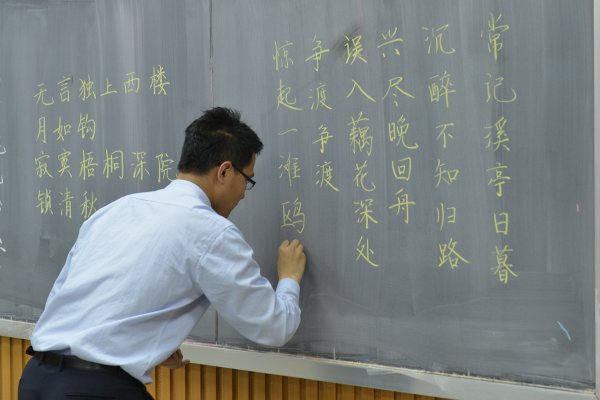 无言独上西楼
月如钩
寂寞梧桐深院
锁清秋
常记溪亭日暮
沉醉不知归路
兴尽晚回舟
误入藕花深处
争渡争渡
惊起一滩鸥